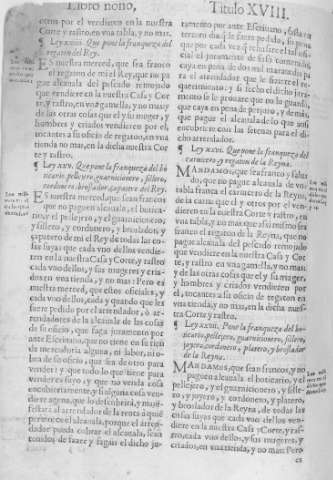 Libro nono,
otros por el verdieren en la nuestra
Corte y rastro, en vna tabla, y no mas.
¶ Ley xxiiij. Que pone la franqueza del
regaton del Rey.
ES nuestra merced, que sea franco
el regaton de mi el Rey, que no pa
gue alcauala del pescado remojado
que vendiere en la nuestra Casa y Cor
te, y rastro, en vna gamella, y no mas; y
de las otras cosas que el y su muger, y
hombres y criados vendieren por el,
tocantes a su oficio de regaton, en vna
tienda no mas, en la dicha nuestra Cor
te y rastro.
¶ Ley xxv. Que pone la franqueza del bo
ticario, pellejero, guarnicionero, sillero,
cordonero, broslador, çapatero del Rey.
ES nuestra merced, que sean francos
que no paguen alcauala, el botica-
rio, y el pellejero, y el guarnicionero,
y sillero, y cordonero, y broslador, y
çapatero de mi el Rey de todas las co-
sas suyas que cada vno dellos vendie-
ren en la nuestra Casa y Corte, y rastro
cada vno dellos, y sus mugeres, y cria-
dos, en vna tienda, y no mas: Pero es
nuestra merced, que estos oficiales, y
cada vno dellos, cada y quando que les
fuere pedido por el arrendador, o ar-
rendadores de la alcauala de las cosas
de su oficio, que haga juramento por
ante Escriuano, que no tiene en su tienda
mercaduria alguna, ni labor, ni o-
bra de su oficio, que sea de otro para
vender: y que todo lo que tiene para
vender es suyo, y que no venda cosa
encubiertamente, y si alguna cosa vendiere
agena, que lo descubrirà, y mani-
festarà al arrendador de la renta a quiẽ
pertenece el alcauala, porque el arren-
dador pueda cobrar el alcauala, sean
tenidos de fazer y fagan el dicho ju-
Titulo XVIII.
ramento por ante Escriuano, fasta en
tercero dia que les fuere pedido, so pena
que por cada vez que rehusare el tal ofi-
cial el juramento de fazer como dicho es,
caya en pena de dos mil marauedis pa
ra el arrendador que le fiziere el re-
querimiento: y si fecho el dicho jura-
mento se le prouare que no lo guardò,
que caya en pena de perjuro, y de mas,
que pague el alcauala de lo que assi
encubriere con las setenas para el di-
cho arrendador.
¶ Ley xxvj. Que pone la franqueza del
carnicero, y regaton de la Reyna.
MANDAMOS, que sea franco y salua
do, que no pague alcauala de vna
tabla franca el carnicero de la Reyna,
de la carne que el y otros por el ven-
dieren en la nuestra Corte y rastro, en
vna tabla, y no mas que assi mesmo sea
franco el regaton de la Reyna, que no
pague alcauala del pescado remojado
que vendiere en la nuestra Casa y Cor
te, y rastro, en vna gamella, y no mas: y
de las otras cosas que el y su muger,
y hombres y criados vendieren por
el, tocantes a su oficio de regaton en
vna tienda, y no mas, en la dicha nuestra
Corte y rastro.
¶ Ley xxvij. Pone la franqueza del bo-
ticario, pellejero, guarnicionero, sillero,
joyero, cordonero, platero, y broslador
de la Reyna.
MANDAMOS, que sean francos, y no
paguen alcauala el boticario, y el
pellejero, y el guarnicionero, y sille-
ro, y joyero, y cordonero, y platero,
y broslador de la Reyna, de todas las
cosas suyas que cada vno dellos ven-
diere en la nuestra Casa y Corte, y ras-
tro, cada vno dellos, y sus mugeres, y
criados, en vna tienda, y no mas: Pero
es